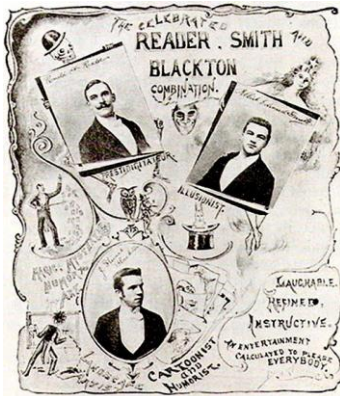 THE CELEBRATED
READER, SMITH AND
BLACKTON
COMBINATION.
PRESTIDIGITATEUR
ILLUSIONIST.
CARTOONIST
and
HUMORIST.
LAUGHABLE.
REFINED.
INSTRUCTIVE.
AN ENTERTAINMENT
CALCULATED TO PLEASE
EVERYBODY.